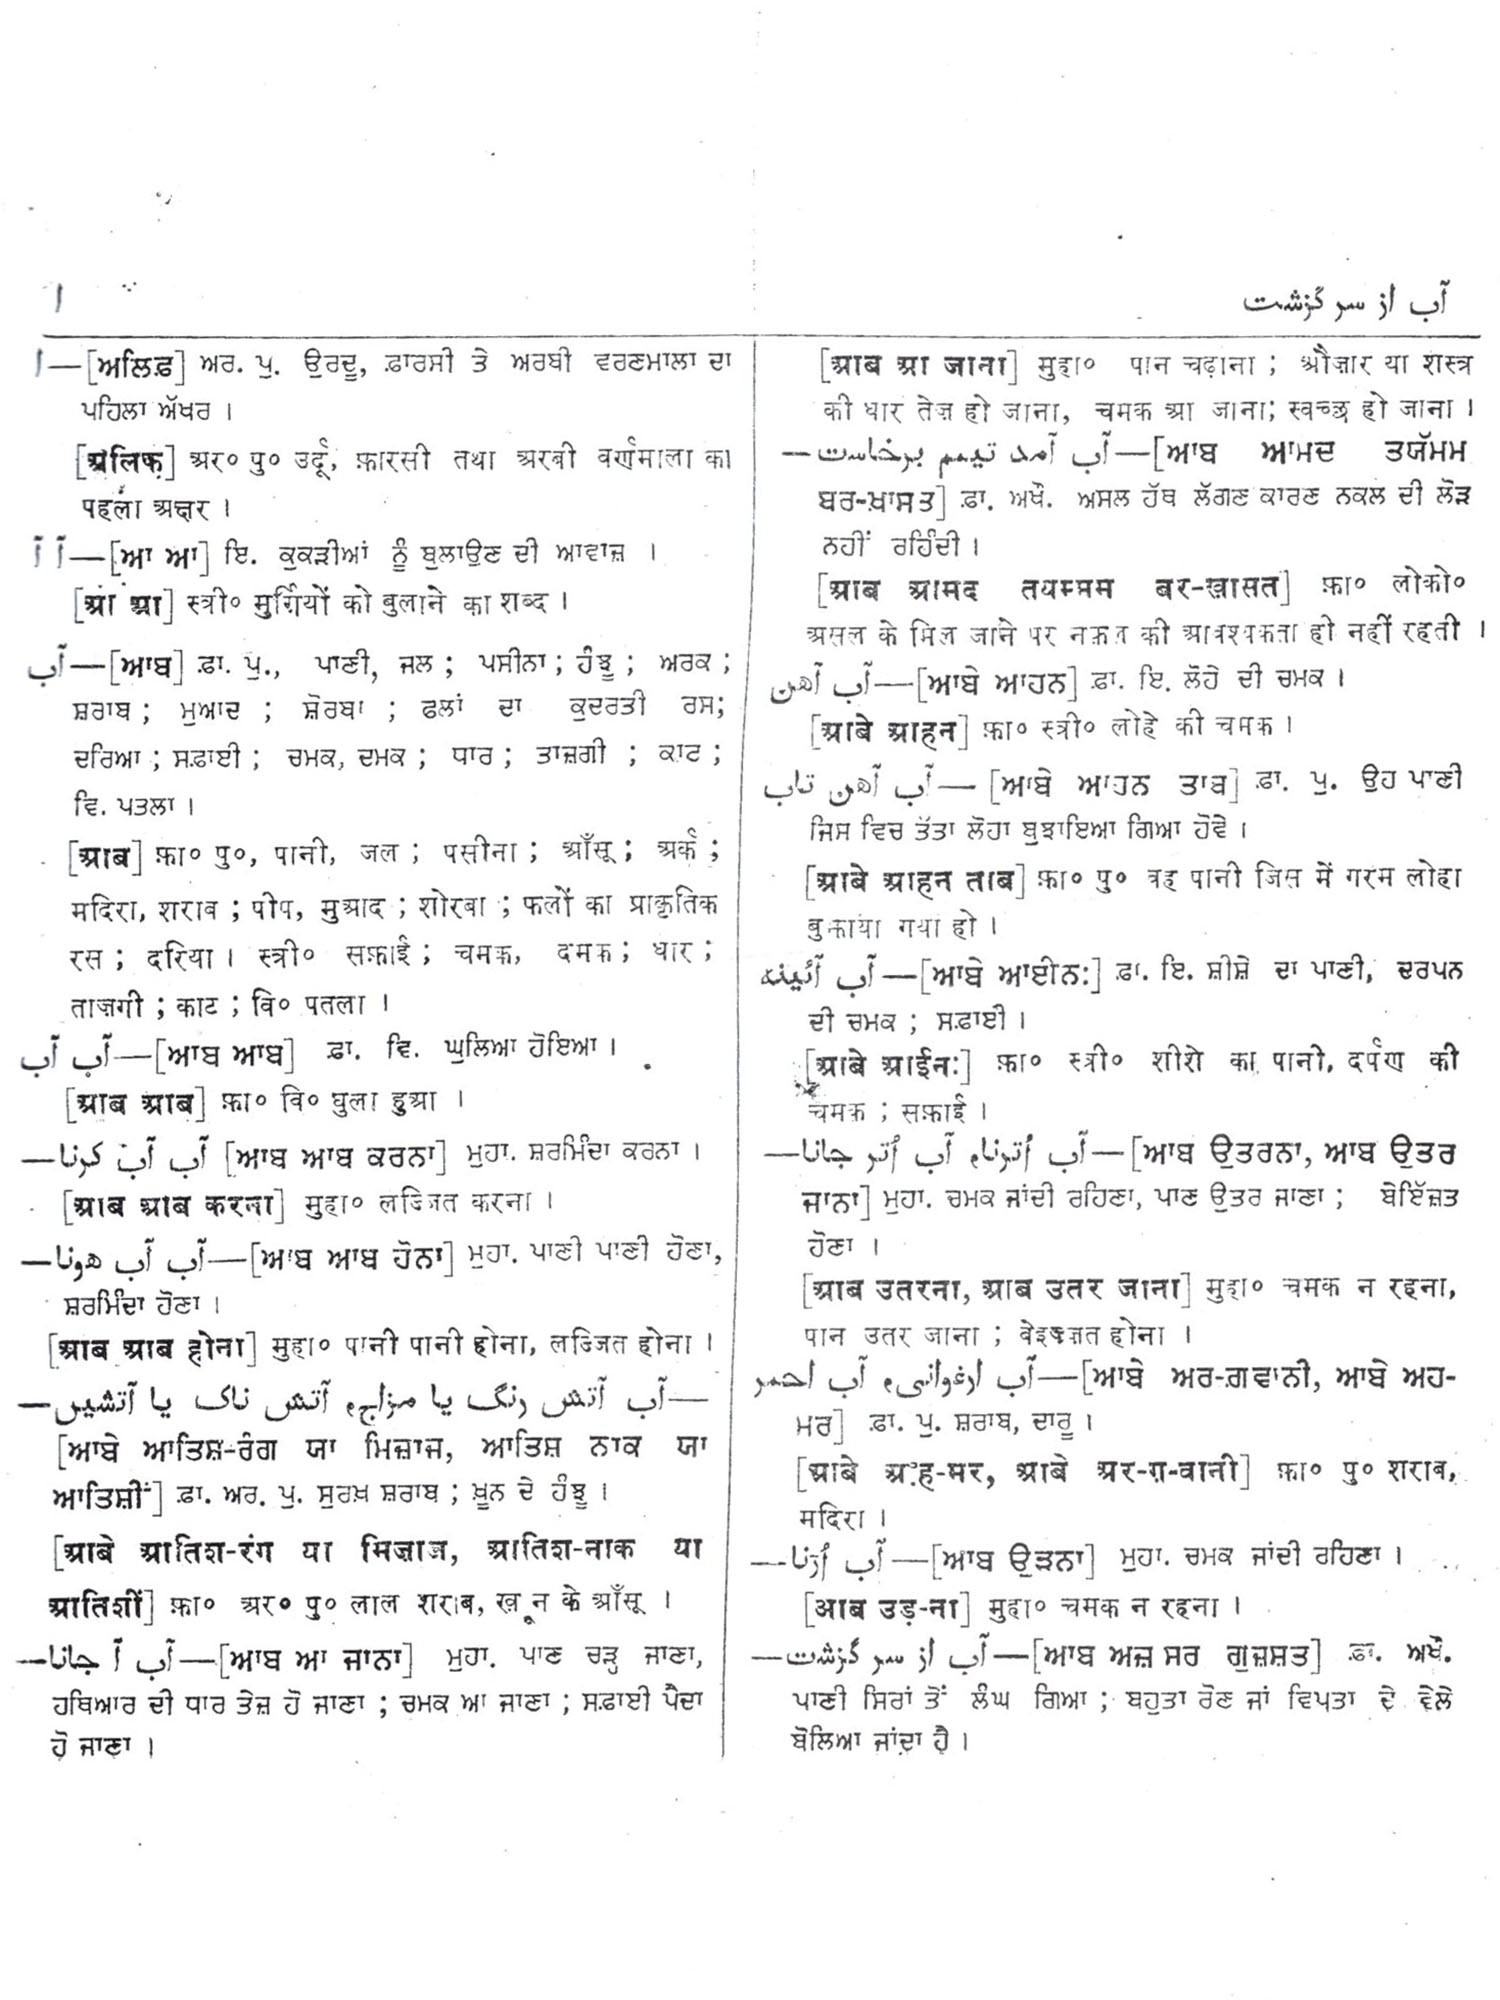 ا
آب از سر گزشت
ا—[ਅਲਿਫ਼] ਅਰ. ਪੁ. ਉਰਦੂ, ਫ਼ਾਰਸੀ ਤੇ ਅਰਬੀ ਵਰਣਮਾਲਾ ਦਾ
ਪਹਿਲਾ ਅੱਖਰ ।
[अलिफ़] अर० पु० उर्दू, फ़ारसी तथा अरबी वर्णमाला का
पहला अक्षर ।
آ آ—[ਆ ਆ] ਇ. ਕੁਕੜੀਆਂ ਨੂੰ ਬੁਲਾਉਣ ਦੀ ਆਵਾਜ਼ ।
[आ आ] स्त्री० मुर्ग़ियों को बुलाने का शब्द ।
آب—[ਆਬ] ਫ਼ਾ. ਪੁ., ਪਾਣੀ, ਜਲ ; ਪਸੀਨਾ ; ਹੰਝੂ ; ਅਰਕ ;
ਸ਼ਰਾਬ ; ਮੁਆਦ ; ਸ਼ੋਰਬਾ ; ਫਲਾਂ ਦਾ ਕੁਦਰਤੀ ਰਸ;
ਦਰਿਆ ; ਸਫ਼ਾਈ ; ਚਮਕ, ਦਮਕ ; ਧਾਰ ; ਤਾਜ਼ਗੀ ; ਕਾਟ ;
ਵਿ. ਪਤਲਾ ।
[आब] फ़ा० पु०, पानी, जल ; पसीना ; आँसू ; अर्क ;
मदिरा, शराब ; पीप, मुआद ; शोरबा ; फलों का प्राकृतिक
रस ; दरिया । स्त्री० सफ़ाई ; चमक, दमक ; धार ;
ताज़गी ; काट ; वि० पतला ।
آب آب—[ਆਬ ਆਬ] ਫ਼ਾ. ਵਿ. ਘੁਲਿਆ ਹੋਇਆ ।
[आब आब] फ़ा० वि० घुला हुआ ।
—آب آب کرنا [ਆਬ ਆਬ ਕਰਨਾ] ਮੁਹਾ. ਸ਼ਰਮਿੰਦਾ ਕਰਨਾ ।
[आब आब करना] मुहा० लज्जित करना ।
—آب آب ھونا—[ਆਬ ਆਬ ਹੋਨਾ] ਮੁਹਾ. ਪਾਣੀ ਪਾਣੀ ਹੋਣਾ,
ਸ਼ਰਮਿੰਦਾ ਹੋਣਾ ।
[आब आब होना] मुहा० पानी पानी होना, लज्जित होना ।
—آب آتش رنگ یا مزاج، آتش ناک یا آتشیں—
[ਆਬੇ ਆਤਿਸ਼-ਰੰਗ ਯਾ ਮਿਜ਼ਾਜ, ਆਤਿਸ਼ ਨਾਕ ਯਾ
ਆਤਿਸ਼ੀਂ] ਫ਼ਾ. ਅਰ. ਪੁ. ਸੁਰਖ਼ ਸ਼ਰਾਬ ; ਖ਼ੂਨ ਦੇ ਹੰਝੂ ।
[आबे आतिश-रंग या मिज़ाज, आतिश-नाक या
आतिशीं] फ़ा० अर० पु० लाल शराब, ख़ून के आँसू ।
—آب آ جانا—[ਆਬ ਆ ਜਾਨਾ] ਮੁਹਾ. ਪਾਣ ਚੜ੍ਹ ਜਾਣਾ,
ਹਥਿਆਰ ਦੀ ਧਾਰ ਤੇਜ਼ ਹੋ ਜਾਣਾ ; ਚਮਕ ਆ ਜਾਣਾ ; ਸਫ਼ਾਈ ਪੈਦਾ
ਹੋ ਜਾਣਾ ।
[आब आ जाना] मुहा० पान चढ़ाना ; औज़ार या शस्त्र
की धार तेज़ हो जाना, चमक आ जाना; स्वच्छ हो जाना ।
—آب آمد تیمم برخاست—[ਆਬ ਆਮਦ ਤਯੱਮਮ
ਬਰ-ਖ਼ਾਸਤ] ਫ਼ਾ. ਅਖੌ. ਅਸਲ ਹੱਥ ਲੱਗਣ ਕਾਰਣ ਨਕਲ ਦੀ ਲੋੜ
ਨਹੀਂ ਰਹਿੰਦੀ ।
[आब आमद तयम्मम बर-ख़ासत] फ़ा० लोको०
असल के मिल जाने पर नक़ल की आवश्यकता ही नहीं रहती ।
آب آھن—[ਆਬੇ ਆਹਨ] ਫ਼ਾ. ਇ. ਲੋਹੇ ਦੀ ਚਮਕ ।
[आबे आहन] फ़ा० स्त्री० लोहे की चमक ।
آب آھن تاب—[ਆਬੇ ਆਹਨ ਤਾਬ] ਫ਼ਾ. ਪੁ. ਉਹ ਪਾਣੀ
ਜਿਸ ਵਿਚ ਤੱਤਾ ਲੋਹਾ ਬੁਝਾਇਆ ਗਿਆ ਹੋਵੇ ।
[आबे आहन ताब] फ़ा० पु० वह पानी जिस में गरम लोहा
बुझाया गया हो ।
آب آئینہ—[ਆਬੇ ਆਈਨ:] ਫ਼ਾ. ਇ. ਸ਼ੀਸ਼ੇ ਦਾ ਪਾਣੀ, ਦਰਪਨ
ਦੀ ਚਮਕ ; ਸਫ਼ਾਈ ।
[आबे आईन:] फ़ा० स्त्री० शीशे का पानी, दर्पण की
चमक ; सफ़ाई ।
—آب اُترنا، آب اُتر جانا—[ਆਬ ਉਤਰਨਾ, ਆਬ ਉਤਰ
ਜਾਨਾ] ਮੁਹਾ. ਚਮਕ ਜਾਂਦੀ ਰਹਿਣਾ, ਪਾਣ ਉਤਰ ਜਾਣਾ ; ਬੇਇੱਜ਼ਤ
ਹੋਣਾ ।
[आब उतरना, आब उतर जाना] मुहा० चमक न रहना,
पान उतर जाना ; बेइज़्ज़त होना ।
آب ارغوانی، آب احمر—[ਆਬੇ ਅਰ-ਗ਼ਵਾਨੀ, ਆਬੇ ਅਹ-
ਮਰ] ਫ਼ਾ. ਪੁ. ਸ਼ਰਾਬ, ਦਾਰੂ ।
[आबे अह-मर, आबे अर-ग़-वानी] फ़ा० पु० शराब,
मदिरा ।
—آب اُڑنا—[ਆਬ ਉੜਨਾ] ਮੁਹਾ. ਚਮਕ ਜਾਂਦੀ ਰਹਿਣਾ ।
[आब उड़-ना] मुहा० चमक न रहना ।
—آب از سر گزشت—[ਆਬ ਅਜ਼ ਸਰ ਗੁਜ਼ਸ਼ਤ] ਫ਼ਾ. ਅਖੌ.
ਪਾਣੀ ਸਿਰਾਂ ਤੋਂ ਲੰਘ ਗਿਆ ; ਬਹੁਤਾ ਰੋਣ ਜਾਂ ਵਿਪਤਾ ਦੇ ਵੇਲੇ
ਬੋਲਿਆ ਜਾਂਦਾ ਹੈ ।